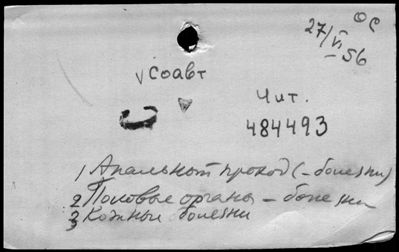 ОС
27/VI
–56
√ соавт
Чит.
484493
1 Анальный проход (–болезни)
2 Половые органы – болезни
3 Кожные болезни